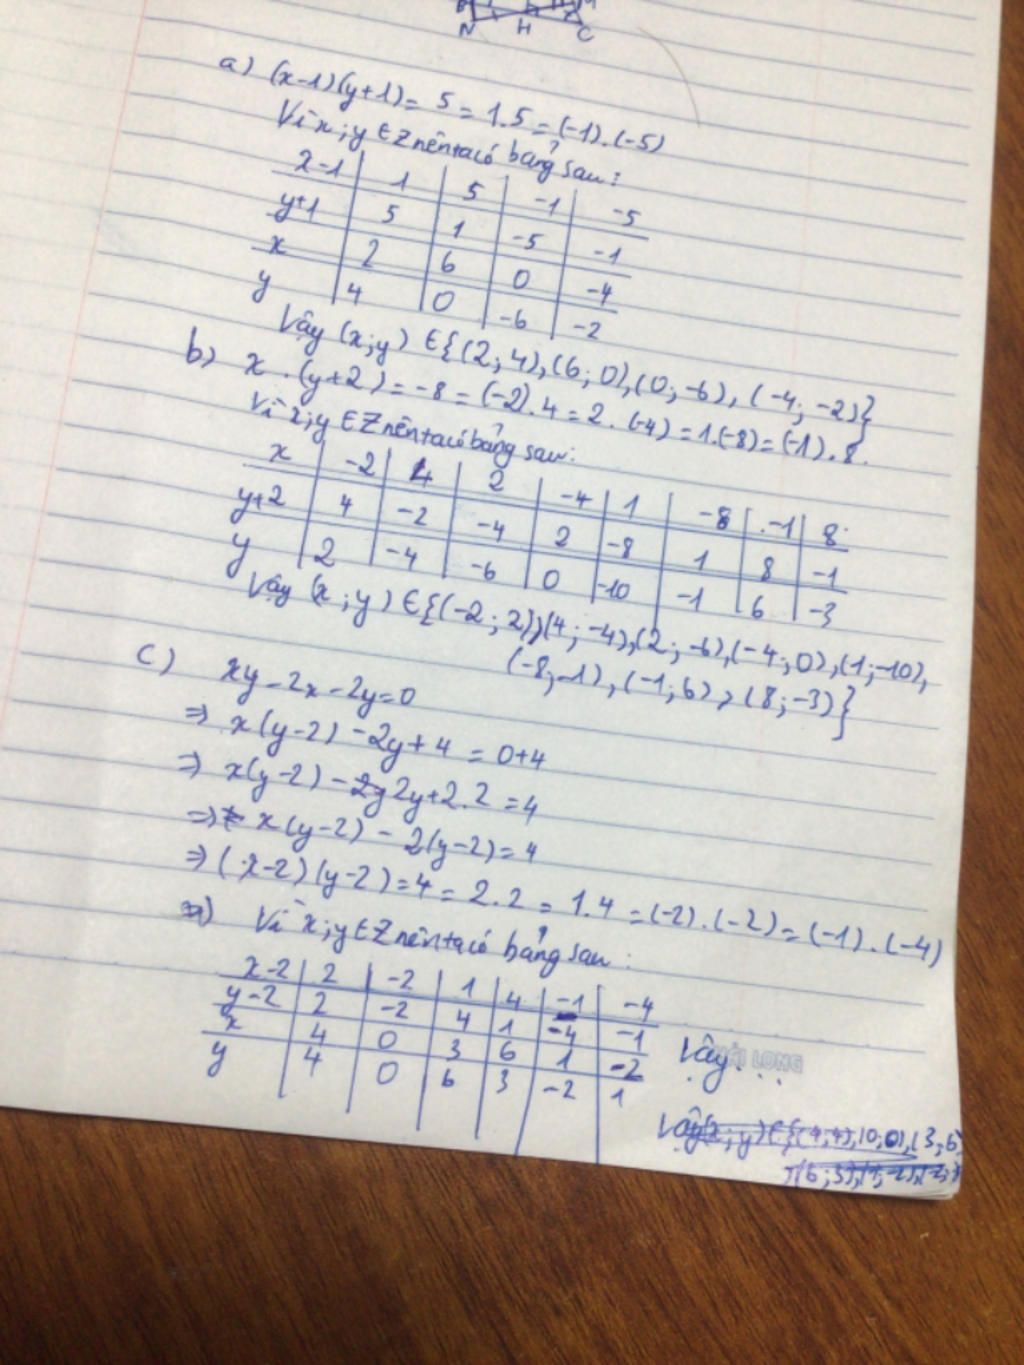 N H C
a) (x-1)(y+1) = 5 = 1.5 = (-1).(-5)
Vì x;y ∈ Z nên ta có bảng sau:
x-1 | 1 | 5 | -1 | -5
y+1 | 5 | 1 | -5 | -1
x | 2 | 6 | 0 | -4
y | 4 | 0 | -6 | -2
Vậy (x;y) ∈ {(2;4),(6;0),(0;-6),(-4;-2)}
b) x.(y+2) = -8 = (-2).4 = 2.(-4) = 1.(-8) = (-1).8.
Vì x;y ∈ Z nên ta có bảng sau:
x | -2 | 4 | 2 | -4 | 1 | -8 | -1 | 8
y+2 | 4 | -2 | -4 | 2 | -8 | 1 | 8 | -1
y | 2 | -4 | -6 | 0 | -10 | -1 | 6 | -3
Vậy (x;y) ∈ {(-2;2),(4;-4),(2;-6),(-4;0),(1;-10),
(-8;-1),(-1;6),(8;-3)}
c) xy-2x-2y=0
⇒ x(y-2) -2y+4 = 0+4
⇒ x(y-2) - 2y+2.2 = 4
⇒ x(y-2) - 2(y-2) = 4
⇒ (x-2)(y-2) = 4 = 2.2 = 1.4 = (-2).(-2) = (-1).(-4)
Vì x;y ∈ Z nên ta có bảng sau:
x-2 | 2 | -2 | 1 | 4 | -1 | -4
y-2 | 2 | -2 | 4 | 1 | -4 | -1
x | 4 | 0 | 3 | 6 | 1 | -2
y | 4 | 0 | 6 | 3 | -2 | 1
Vậy...
LONG
Vậy (x;y) ∈ {(4;4),(0;0),(3;6)